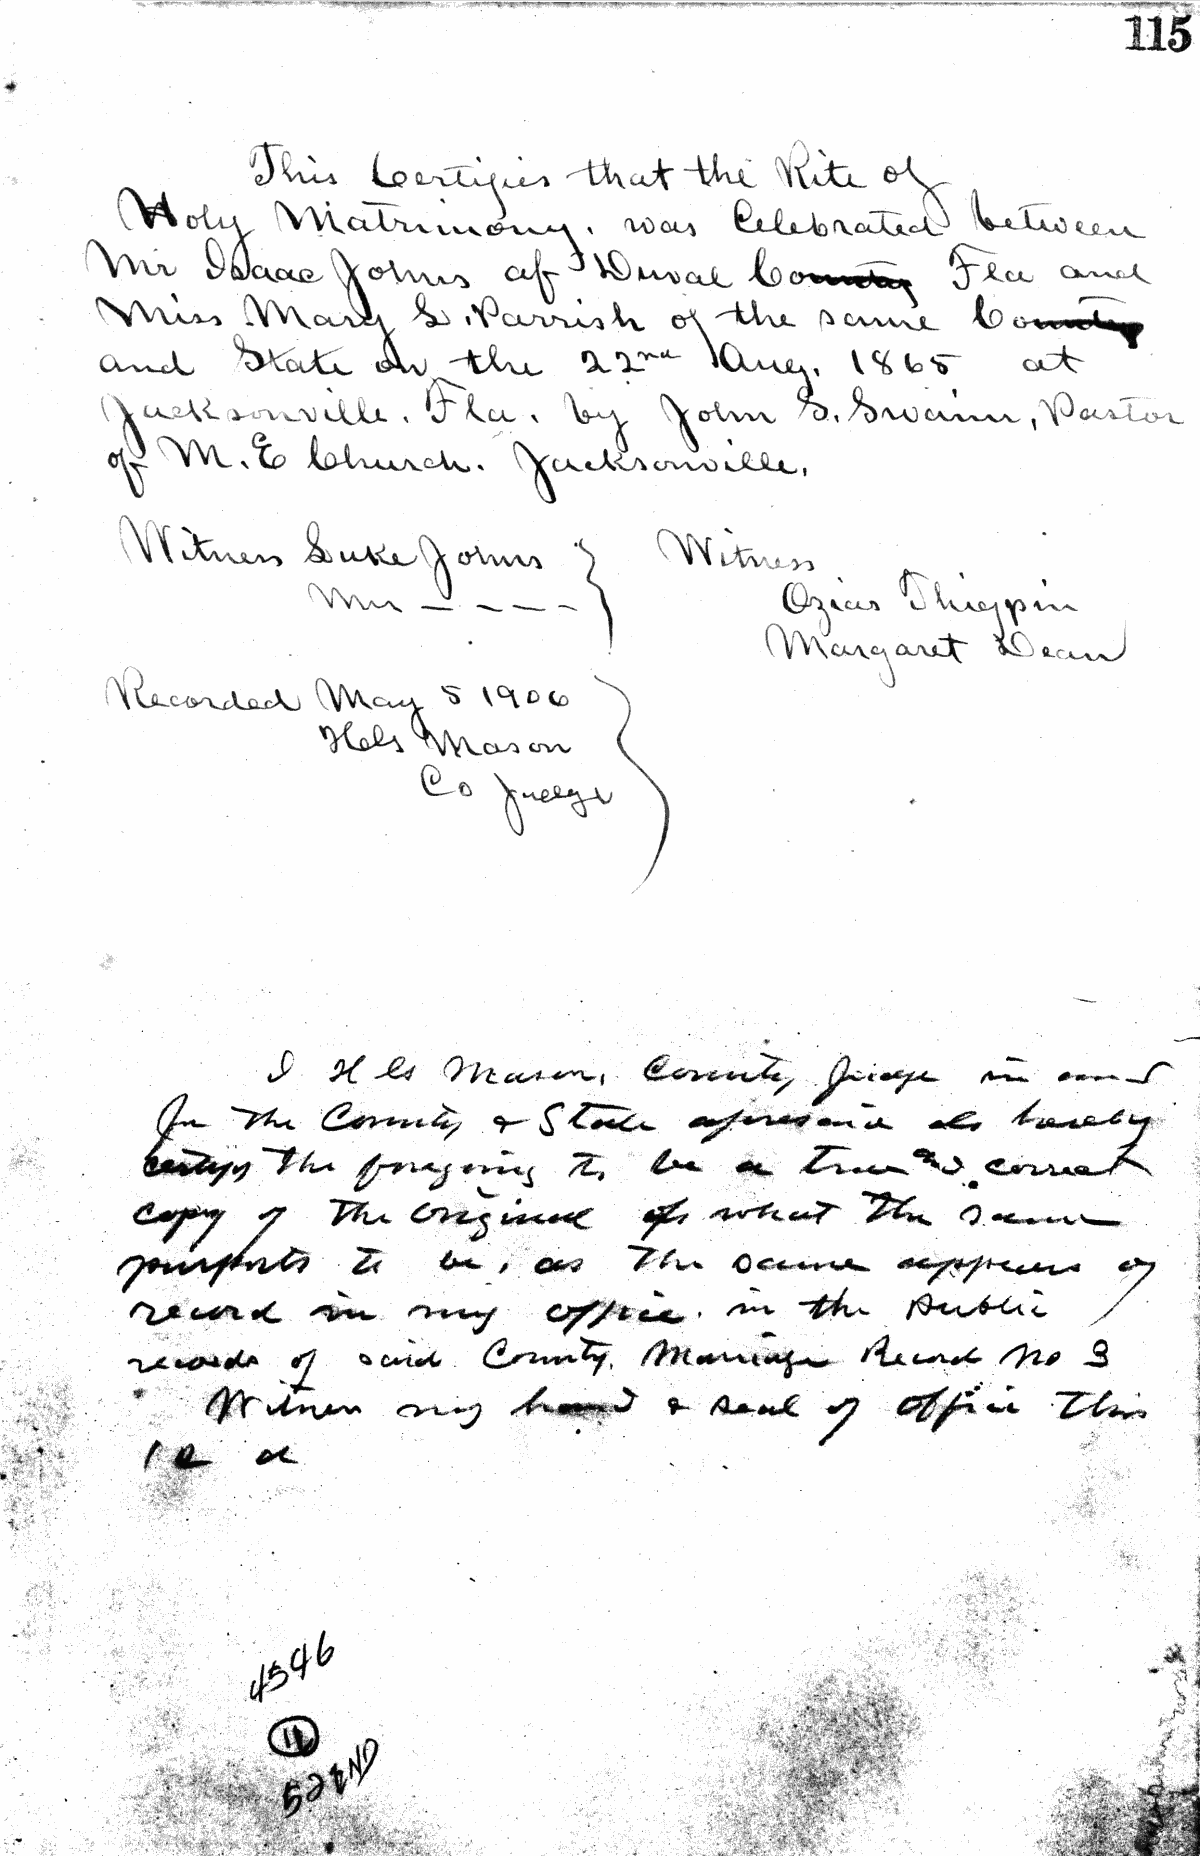 115
This Certifies that the Rite of
Holy Matrimony. was Celebrated between
Mr Isaac Johns of Duval County Fla and
Miss Mary S. Parrish of the same County
and State on the 22nd Aug. 1865 at
Jacksonville. Fla. by John S. Swaim, Pastor
of M. E Church. Jacksonville.
Witness Luke Johns
Mrs - - - -
Witness
Ozias Thigpin
Margaret Dean
Recorded May 5 1906
Mason
Co Judge
I Mason, County Judge in and
for the County & State aforesaid do hereby
certify the foregoing to be a true and correct
copy of the original of what the same
purports to be, as the same appears of
record in my office. in the public
records of said County, Marriage Record No 3
Witness my hand & seal of office this
12 d
4546
11
52END